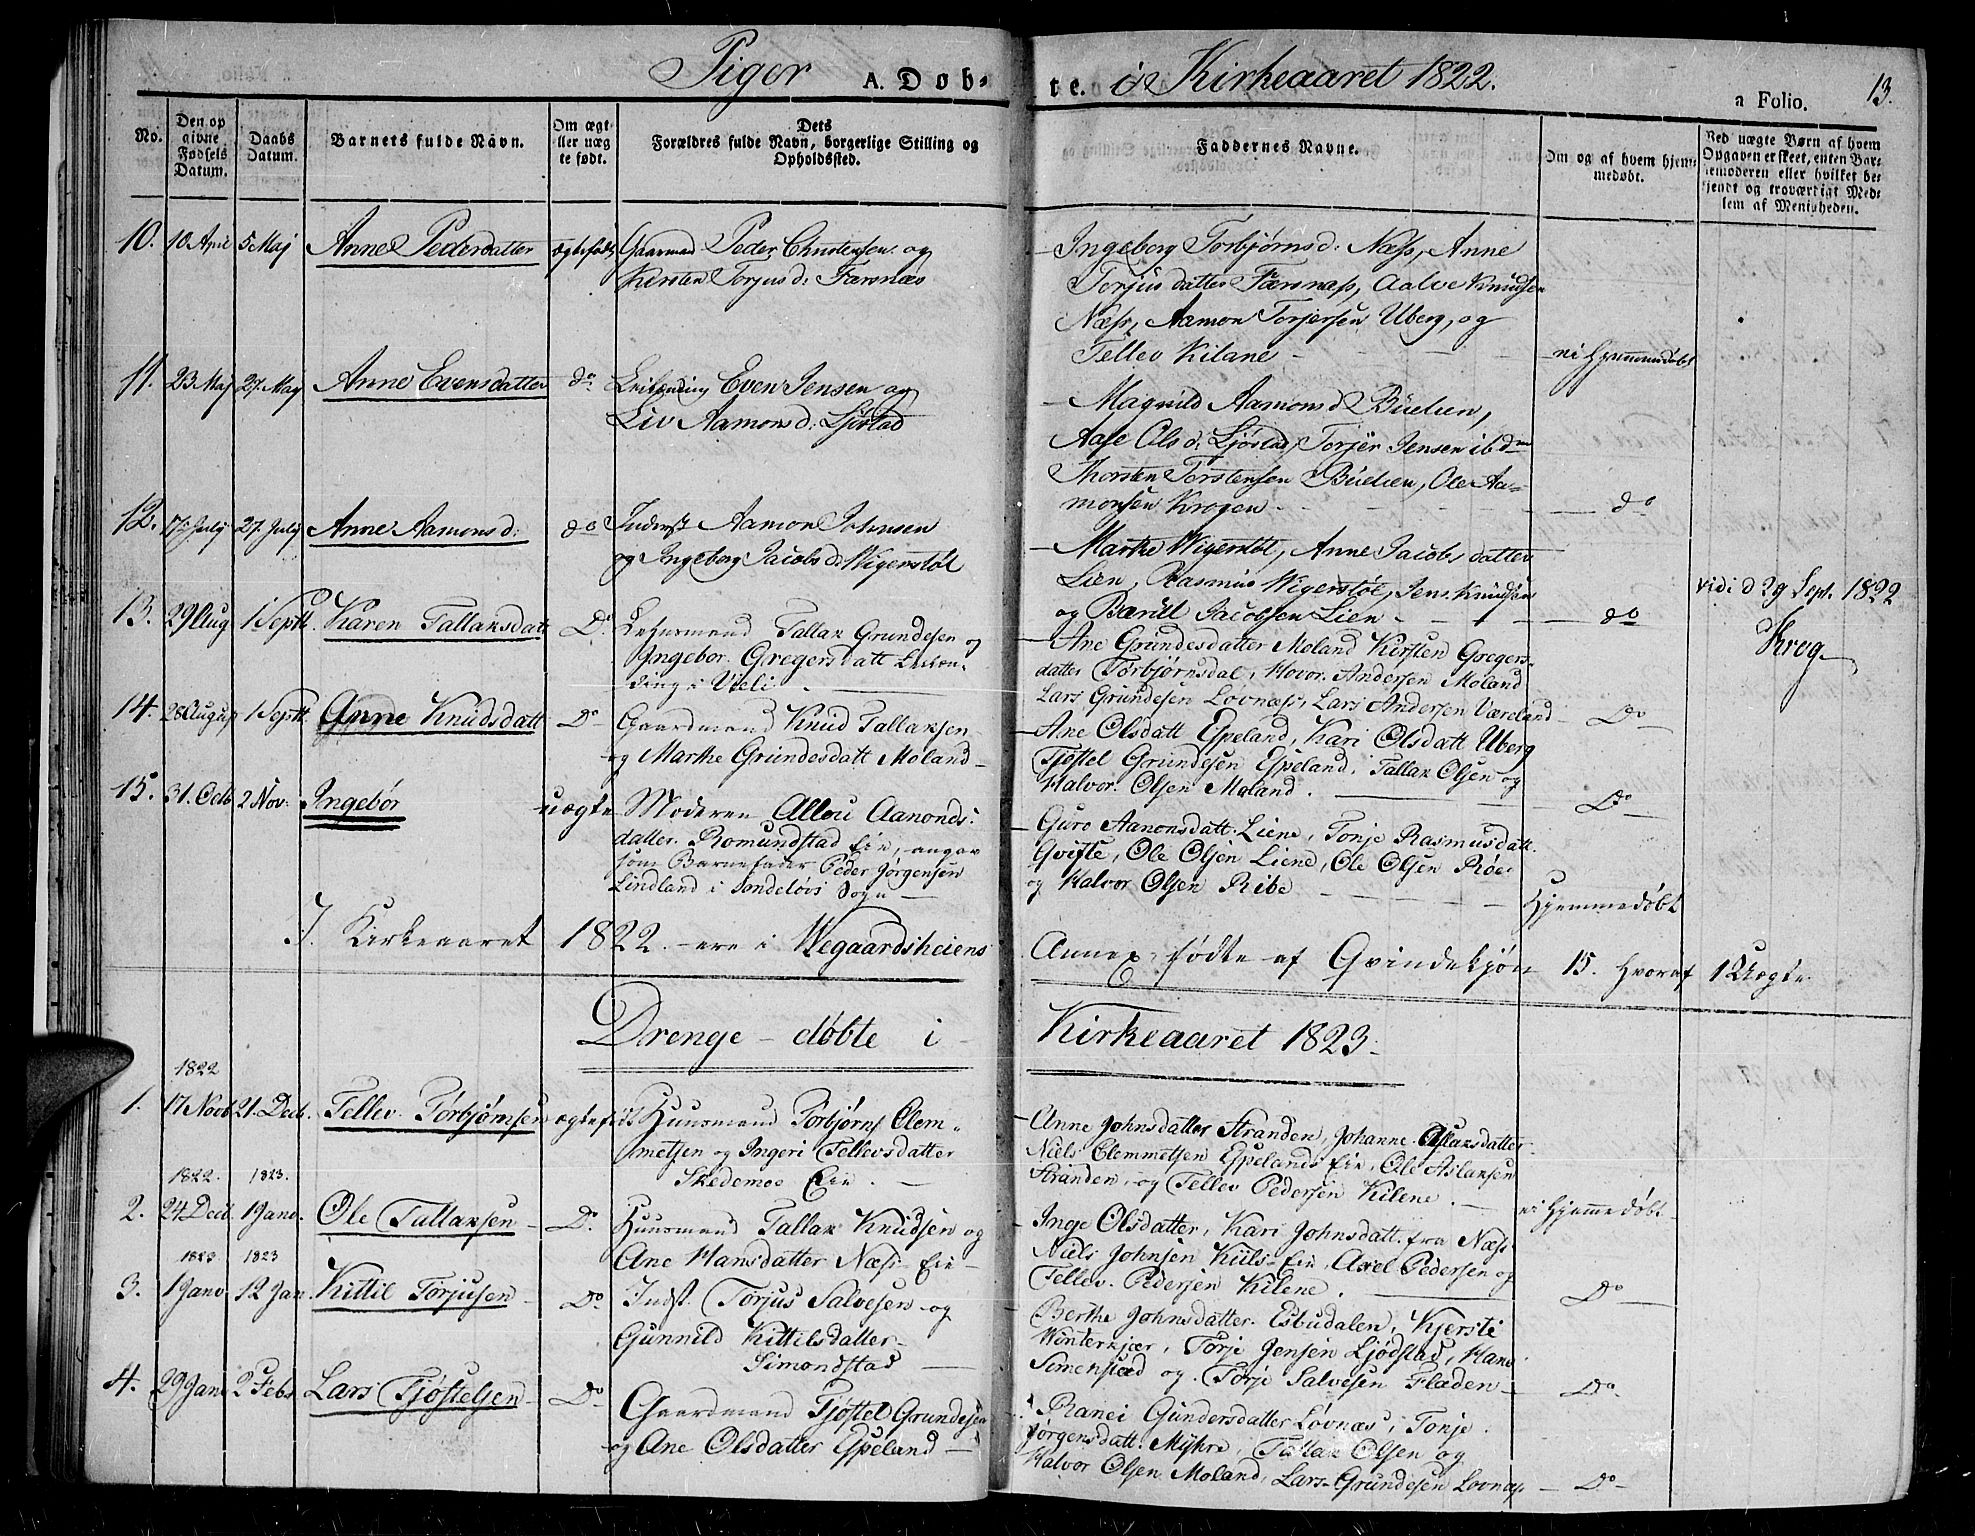 Piger A. Døb-
te. i Kirkeaaret 1822.
a Folio. 13.
No.
Den op
givne
Fødsels
Datum.
Daabs
Datum.
Barnets fulde Navn.
Om ægt
ller uæg
te født.
Dets
Forældres fulde Navn, borgerlige Stilling og
Opholdssted.
Faddernes Navne.
Om og af hvem hjem-
medøbt.
Ved uægte Børn af hvem
Opgaven er skeet, enten Bar-
nemoderen eller hvilket be-
kjendt og troværdigt Med-
lem af Menigheden.
10. 10 April 5 Maj Anne Pedersdatter ægtefødt Gaarmad Peder Christensen og
Kirsten Torjus d: Færsnæs
Ingeborg Torbjørns d: Næss, Anne
Torjus datter Færsnæss, Aalve Knudsen
Næss, Aamon Torjersen Uberg, og
Tellev Kilane - ei Hjemmedøbt
11. 23 Maj 27. Maj Anne Evensdatter do Even Jensen og
Liv Aamons d: Ljøstad
Magnild Aamons d Büelien,
Aase Ols d: Ljøstad, Torjer Jensen ibdm
Thorsten Torstensen Büelien, Ole Aa-
monsen Krogen - do
12. 17. July 27. July Anne Aamons d: do Inderst Aamon Johnsen
og Ingeborg Jacobs d: Wigerstøl
Marthe Wigerstøl, Anne Jacobs datter
Lien, Rasmus Wigerstøl, Jens Knudsen
og Jacobsen Lien - do
vidi d 29 Sept. 1822
Krog
13. 29 Aug 1 Septb. Karen Tallaksdatt Do Lehnsmand Tallak Grundesen og
Ingebor. Gregersdatt
Ane Grundesdatter Moland Kirsten Gregers-
datter Torbjørnsdal, Hovor Andersen Moland
Lars Grundesen Lovnæss, Lars Andersen Væreland - Do
14. 28 August 1 Septb. Anne Knudsdatt Do Gaardmand Knud Tallaksen
og Marthe Grundesdatt Moland -
Ane Olsdatt Espeland, Kari Olsdatt Uberg
Tjøstel Grundesen Espeland, Tallak Olsen og
Halvor Olsen Moland. - Do
15. 31. Octb 2 Nov: Ingebor uægte Moderen Aanonds:
datter Romundstad Eie, angav
som Barnefader Peder Jørgensen
Lindland i Søndeløvs Sogn -
Guro Aanonsdatt. Liene, Tonje Rasmusdatt.
Gvifte, Ole Olsen Liene, Ole Olsen Røe
og Halvor Olsen Ribe - Hjemmedøbt
I Kirkeaaret 1822. - ere i Wegaardsheiens
Annex fødte af Qvindekjøn 15. hvoraf 1 Uægte.
Drenge - døbte i -
Kirkeaaret 1823.
1822
1. 17 Novb 21. Decb. Tellev. Torbjørnsen ægtefødt Huusmand Torbjørn Clem-
metsen og Ingeri Tellevsdatter
Skedemoe Eie. -
Anne Johnsdatter Stranden, Johanne Aslaksdatter
Niels Clemmetsen Espelands Eie, Ole Aslaksen
Stranden, og Tellev Pedersen Kilene. - ei Hjemmedøbt
1822. 1823.
2. 24 Decb. 1 Janv. Ole Tallaksen Do Huusmand Tallak Knudsen og
Ane Hansdatter Næss Eie -
Inge Olsdatter, Kari Johnsdatt. fra Næss
Niels Johnsen Kiils-Eie, Axel Pedersen og
Tellev. Pedersen Kilene. - Do
1823 1823
3. 1 Janv 12 Jan. Kittil Torjusen Do Indst. Torjus Salvesen og
Gunnild Kittilsdatter
Simondstad -
Berthe Johnsdatter. Esbudalen, Kjersti
Winterkjær, Torje Jensen Ljødstad, Hans
Simenstad og Torje Salvesen Fladen - Do
4. 29 Janv 2 Feb. Lars Tjøstelsen Do Gaardmand Tjøstel Grundesen
og Ane Olsdatter Espeland -
Ranei Gundersdatter Lovnæs, Tonje
Jørgensdatt. Myhre, Tallak Olsen og
Halvor Olsen Moland, Lars Grundesen Lovnæss - Do